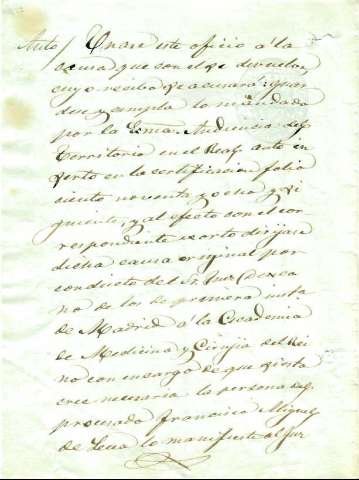 Auto / Unase este oficio á la
causa que con el se devuelve,
cuyo recibo se acusará: guar
dese y cumpla lo mandado
por la Exma. Audiencia del
Territorio en el Real auto in
serto en la certificacion folio
ciento noventa y ocho y si
guiente, y al efecto con el cor
respondiente exorto dirijase
dicha causa original por
conducto del Sr. Juez Deca
no de los de primera insta
de Madrid á la Academia
de Medicina y Cirujia del Rei
no con encargo de que si esta
cree necesaria la persona del
procesado Francisco Miguel
de Leua lo manifieste al Juz